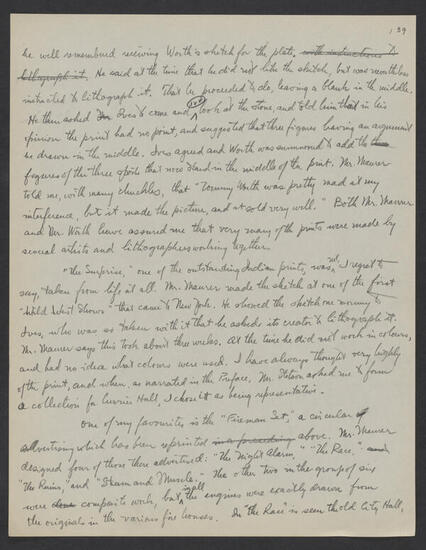 139
he well remembered receiving Worth's sketch for the plate, with instructions to
lithograph it. He said at the time that he did not like the sketch, but was nevertheless
instructed to lithograph it. This he proceeded to do, leaving a blank in the middle.
He then asked Ives to come and look at the stone, and told him that in his
opinion the print had no point, and suggested that three figures having an argument
be drawn in the middle. Ives agreed and Worth was summoned to add the
figures of the three sports that now stand in the middle of the print. Mr. Maurer
told me, with many chuckles, that "Tommy Worth was pretty mad at my
interference, but it made the picture, and it sold very well." Both Mr. Maurer
and Mr. Worth have assured me that very many of the prints were made by
several artists and lithographers working together.
"The Surprise," one of the outstanding Indian prints, was not, I regret to
say, taken from life at all. Mr. Maurer made the sketch at one of the first
"Wild West Shows" that came to New York. He showed the sketch one morning to
Ives, who was so taken with it that he asked its creator to lithograph it.
Mr. Maurer says this took about three weeks. At the time he did not work in colours,
and had no idea what colours were used. I have always thought very highly
of the print, and when, as narrated in the Preface, Mr. Stetson asked me to form
a collection for Currier Hall, I chose it as being representative.
One of my favourites is the "Fireman Set," a circular
advertising which has been reprinted in a preceding above. Mr. Maurer
designed four of those there advertised: "The Night Alarm," "The Race,"
"The Ruins," and "Steam and Muscle." The other two in the group of six
were composite work, but in all the engines were exactly drawn from
the originals in the various fire houses. In "The Race" is seen the old City Hall,